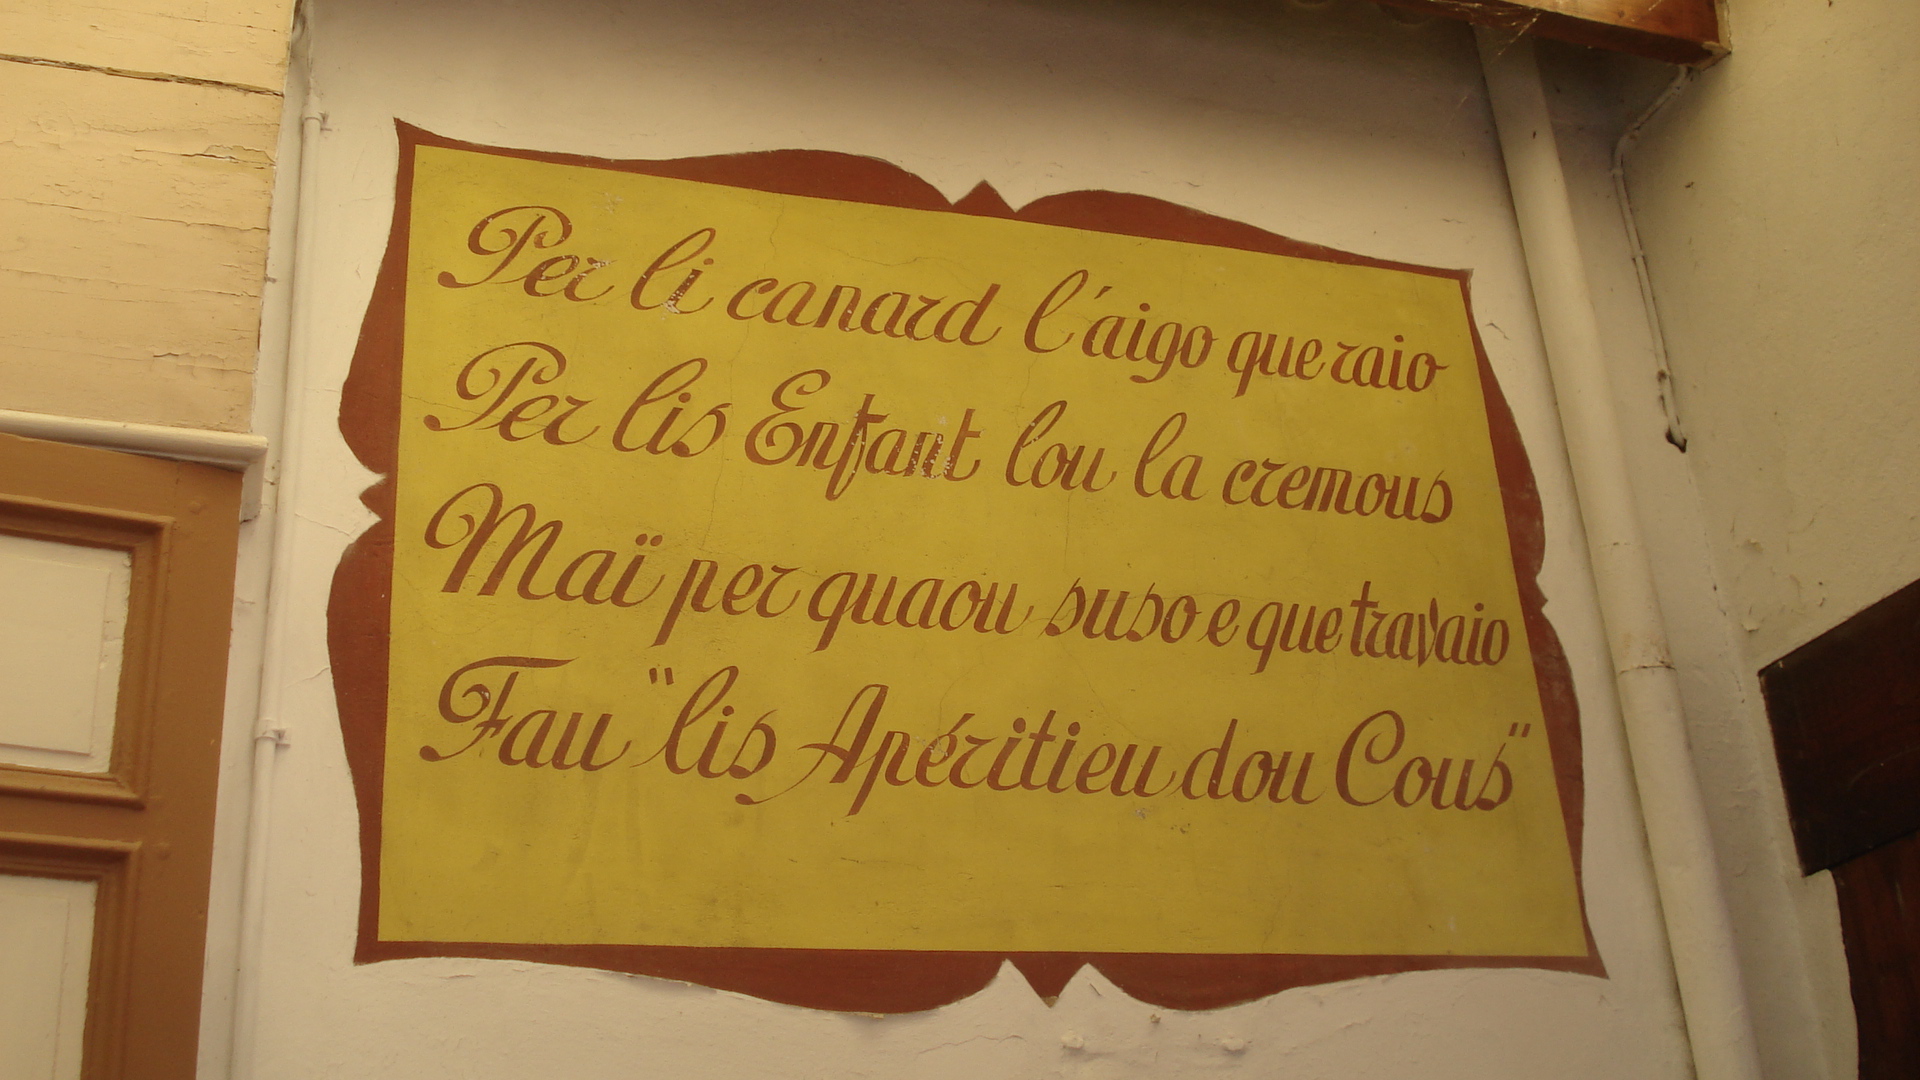 Per li canard l'aigo que raio
Per lis Enfant lou la cremous
Maï per quaou suso e que travaio
Fau "lis Apéritieu dou Cous"